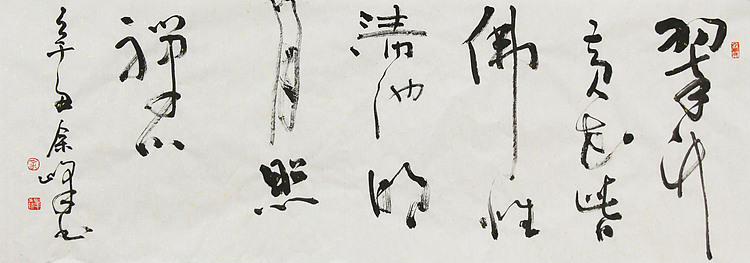 翠竹
黄花皆
佛性
清池明
月照
禅心
辛丑余峰书